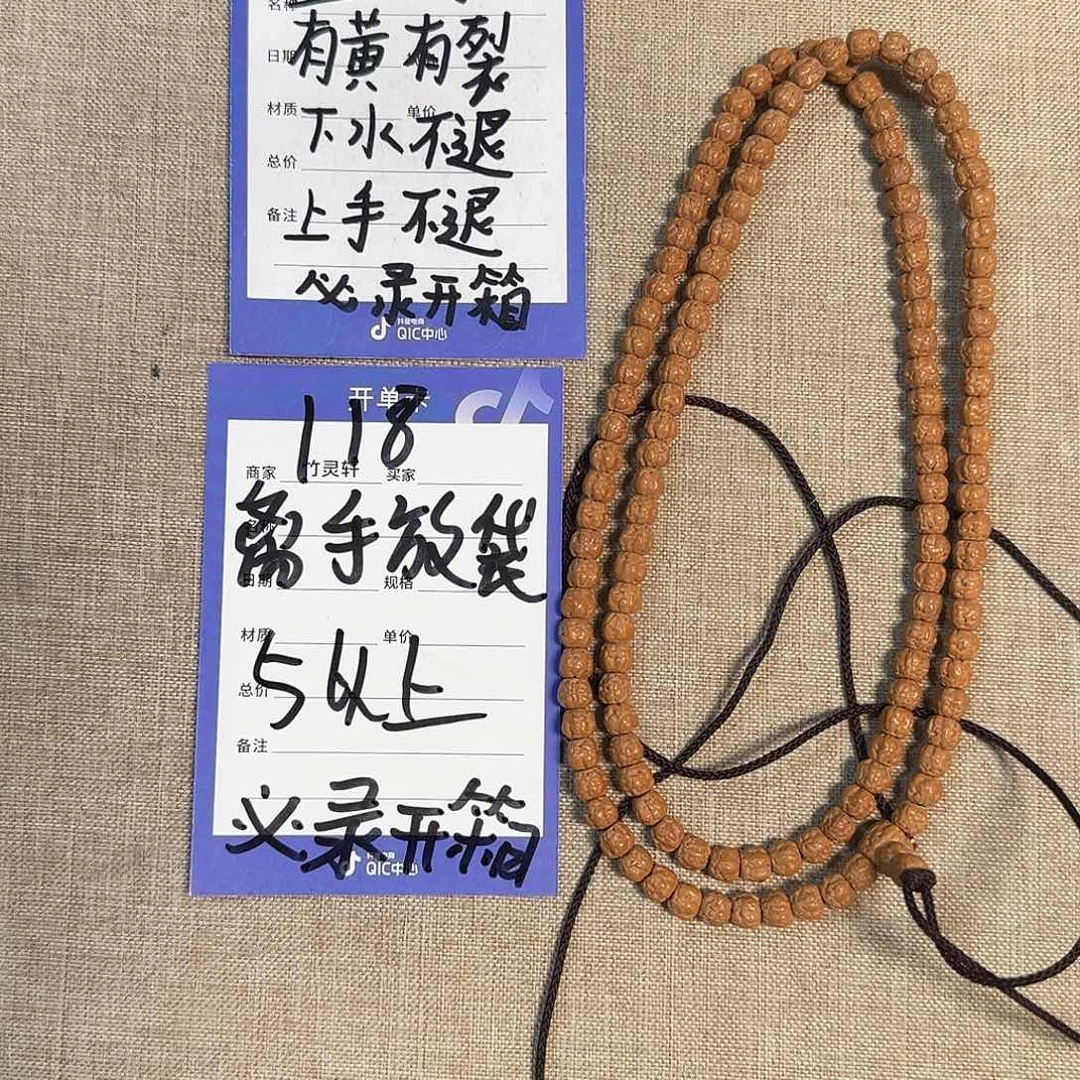 名称
有黄有裂
日期
材质 单价
下水不退
总价
备注
上手不退
必录开箱
抖音电商
QIC中心
开单卡
118
商家 竹灵轩 买家
离手放袋
名称
日期 规格
材质 单价
5以上
总价
备注
必录开箱
抖音电商
QIC中心